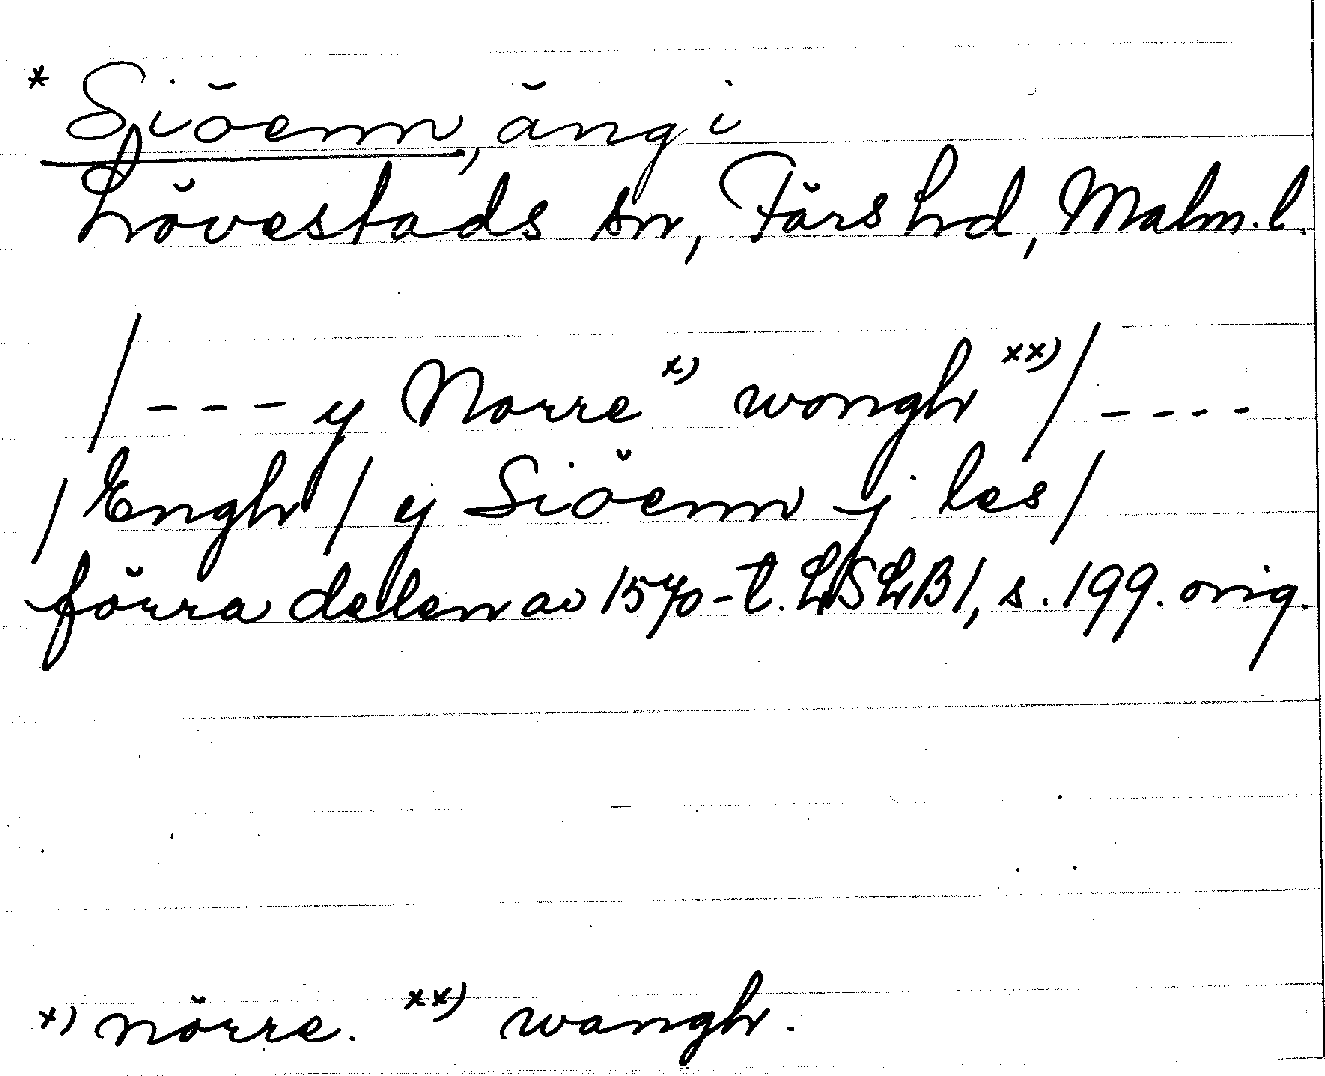 * Siöenn, äng i
Lövestads sn, Färs hd, Malm. l.
/ - - - y Norre x) wongh xx) / - - - -
/ Engh / y Siöenn j les /
förra delen av 1570-t. LSLB1, s. 199. orig.
x) nörre. xx) wangh.